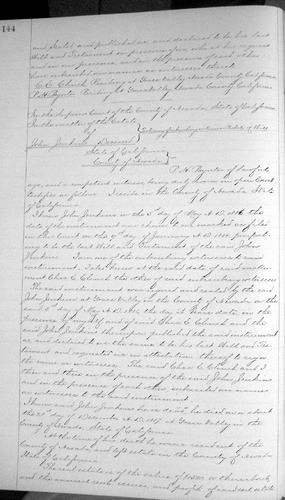 144
and Sealed and published as, and declared to be his last
Will and Testament in presence of us, who at his request
and in our presence, and in the presence of each other
have subscribed our names as witnesses thereto
C. C. Church Residing at Grass Valley Nevada County California
P. H. Paynter Residing at Grass Valley Nevada County California
In the Superior Court of the County of Nevada, State of California
In the matter of the Estate
of
John Jenkins Deceased
Testimony of subscribing witness on Probate of Will
State of California
County of Nevada
P. H. Paynter of lawful
age, and a competent witness, being duly sworn in open Court
testifies as follows. I reside in the County of Nevada State
of California
I knew John Jenkins on the 3d day of May A.D. 1886 the
date of the instrument now shown to me marked as filed
in this Court on the day of A.D. purport-
ing to be the last Will and Testament of the said John
Jenkins. I am one of the subscribing witnesses to said
instrument. I also knew at the said date of said instru-
ment Chas. C. Church the other subscribing witness
The said instrument was signed and sealed by the said
John Jenkins at Grass Valley in the County of Nevada on the
said 3d day of May A.D. 1886 the day it bears date in
the presence of myself and of said Chas C. Church and the
said John Jenkins thereupon published the said instrument
as, and declared to us the same to be his last Will and Tes-
tament and requested us in attestation thereof to sign
the same as witnesses. The said Chas C. Church and I
then and there in the presence of the said John Jenkins
and in the presence of each other subscribed our names
as witnesses to the said instrument.
I knew said John Jenkins he is dead, he died on or about
the day of December A.D. 1887 at Grass Valley in the
County of Nevada, State of California
At the time of his death he was a resident of the
County of Nevada, and left estate in the County of Nevada
State of California
The said estate is of the value of or thereabouts
and the annual rents, issues, and profits of said estate